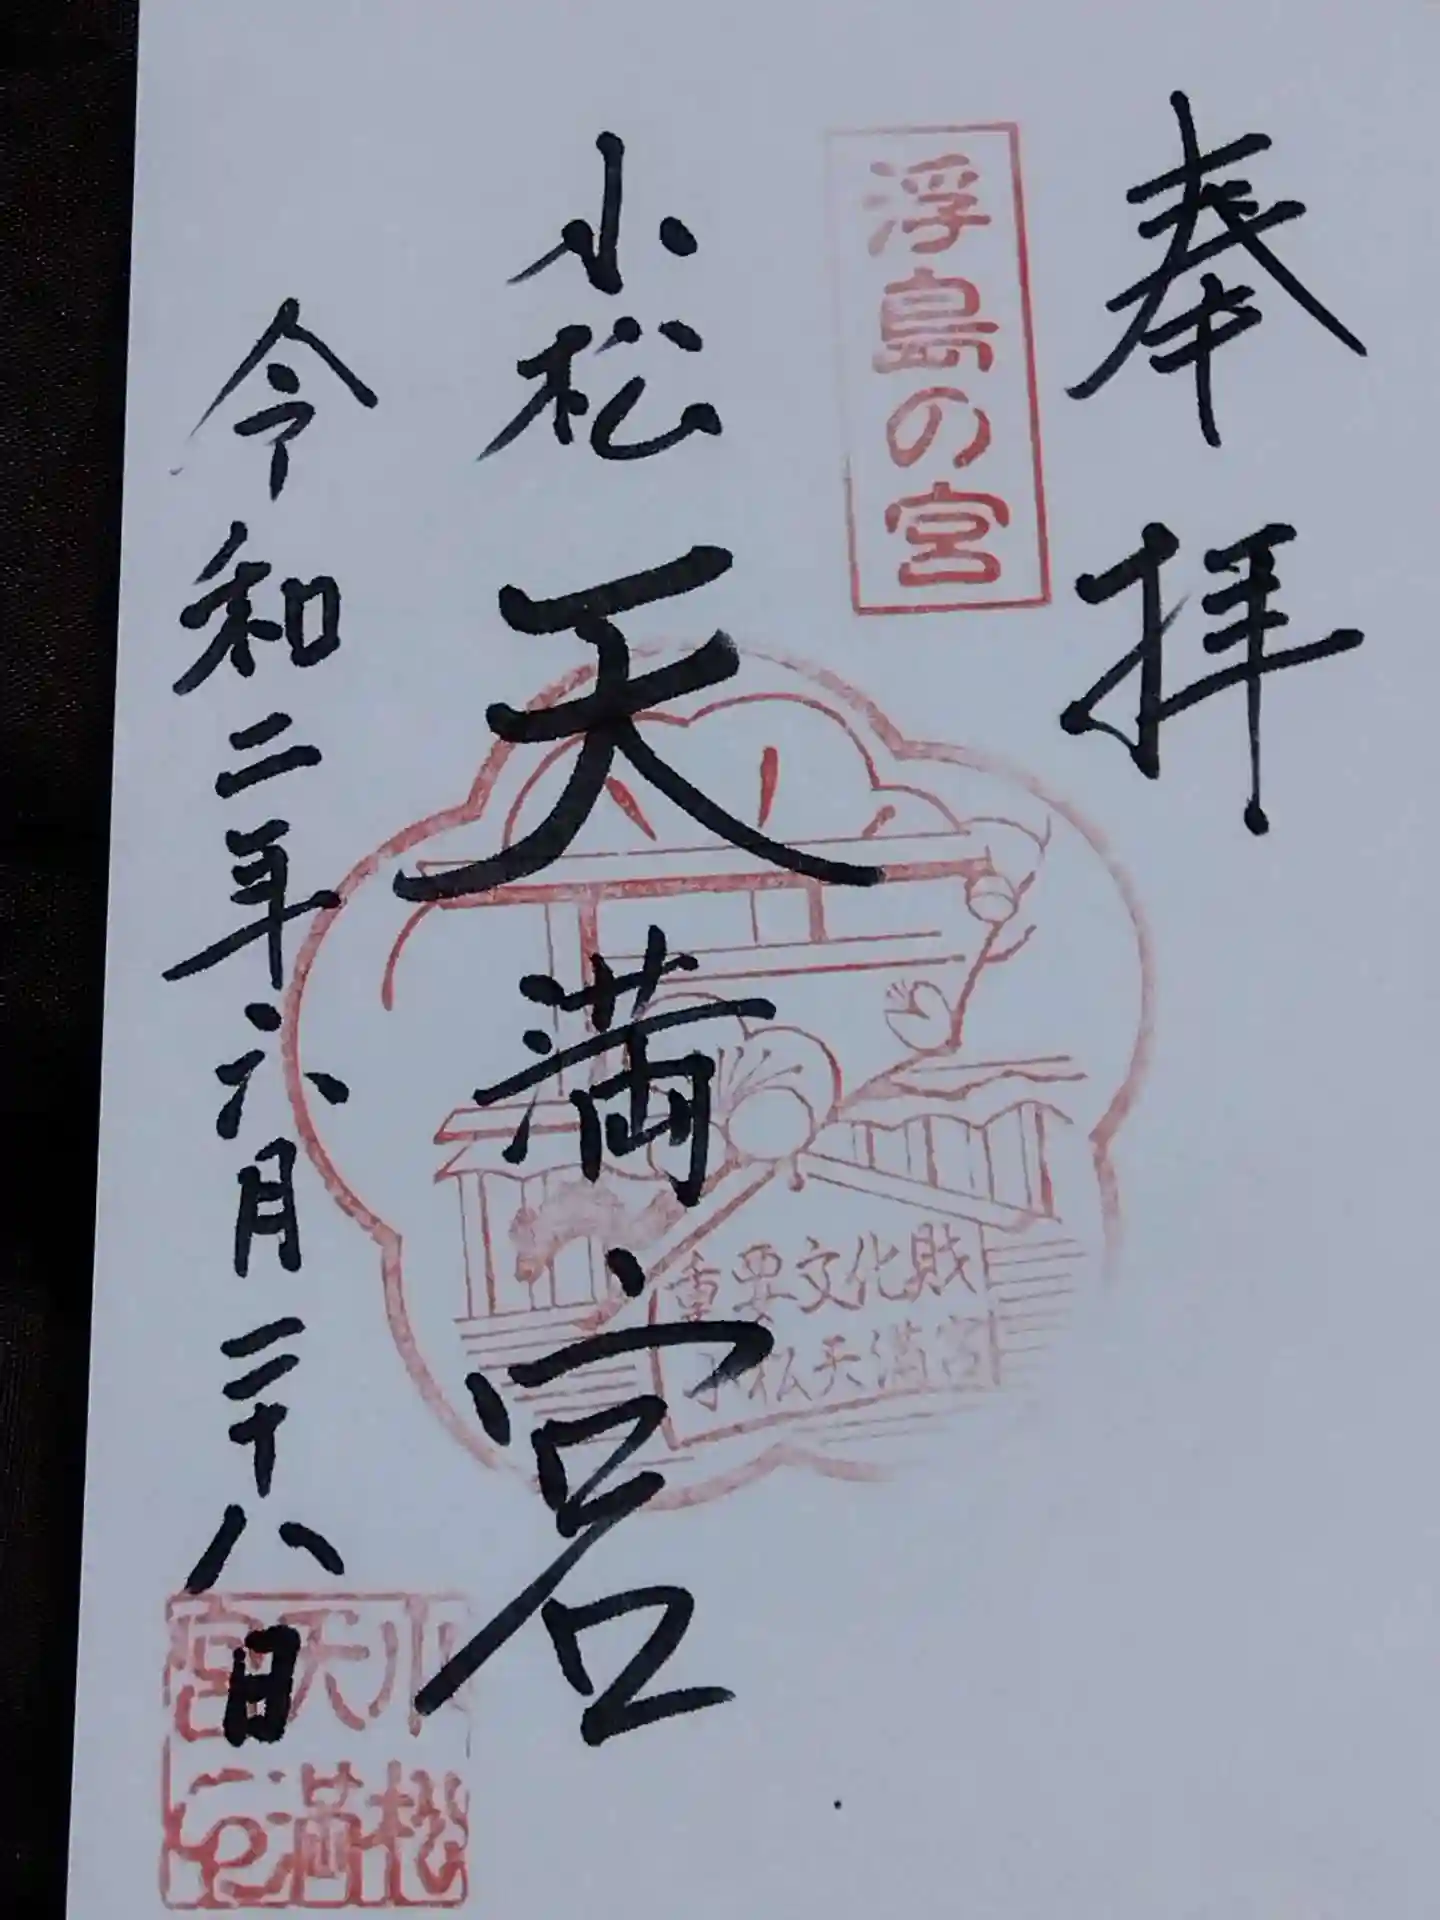 奉拝
浮島の宮
小松天満宮
重要文化財
小松天満宮
令和二年六月二十八日
小松
天満
宮印